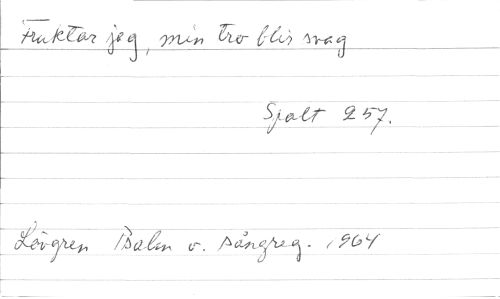 Fruktar jag, min tro blir svag
Spalt 257.
Lövgren Psalm o. sångreg. 1964